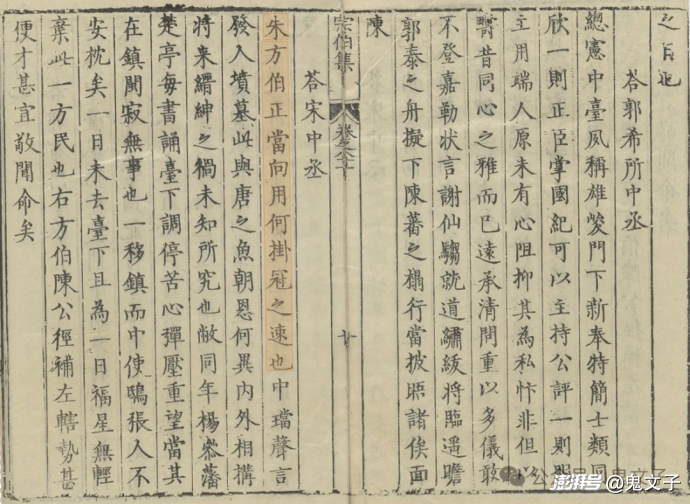 之日也
答郭希所中丞
總憲中臺夙稱雄峻門下新奉特簡士類同
欣一則正臣掌國紀可以主持公評一則
主用端人原未有心阻抑其為私忭非但以
疇昔同心之雅而已遠承清問重以多儀敢
不登嘉勒狀言謝仙騶就道繡紱將臨遥瞻
郭泰之舟擬下陳蕃之榻行當披晤諸俟面
陳
宗伯集
卷之六十
答宋中丞
朱方伯正當向用何掛冠之速也中璫聲言
發入墳墓此與唐之魚朝恩何異内外相搆
將来縉紳之禍未知所究也敝同年楊叅藩
楚亭每書誦臺下調停苦心彈壓重望當其
在鎮閴寂無事也一移鎮而中使鴟張人不
安枕矣一日未去臺下且為一日福星無輕
棄此一方民也右方伯陳公徑補左轄勢甚
便才甚宜敬聞命矣
澎湃号@鬼文子